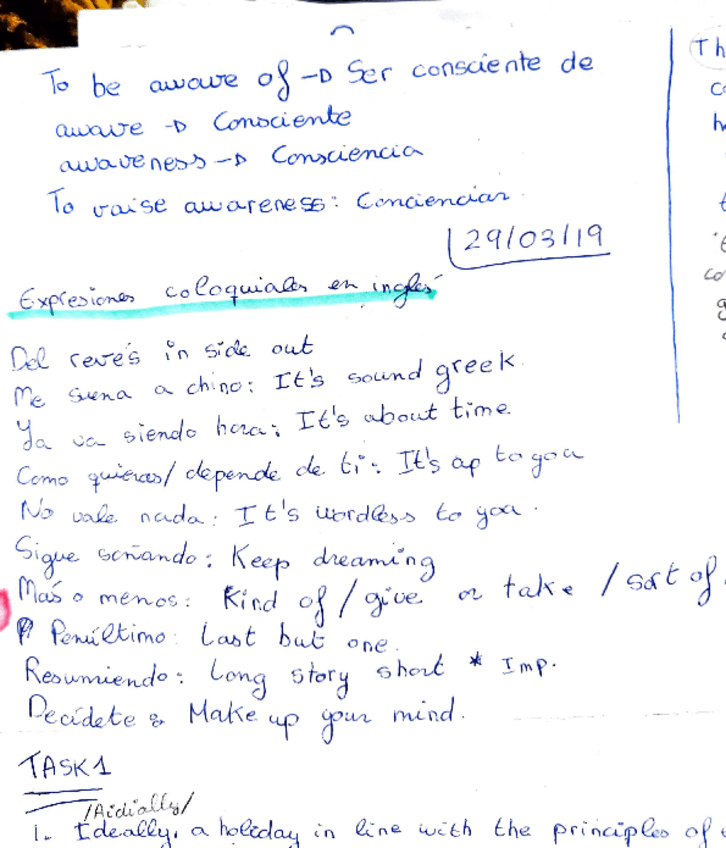 To be aware of → Ser consciente de
aware → Consciente
awareness → Consciencia
To raise awareness: Concienciar.
29/03/19
Expresiones coloquiales en inglés
Del revés in side out
Me suena a chino: It's sound greek.
Ya va siendo hora: It's about time.
Como quieras/ depende de ti: It's ap to you
No vale nada: It's wordless to you.
Sigue soñando: Keep dreaming
Más o menos: Kind of / give or take / sort of
Penúltimo: Last but one.
Resumiendo: Long story short * Imp.
Decídete: Make up your mind.
TASK1
/Aidially/
1. Ideally, a holiday in line with the principles of
Th